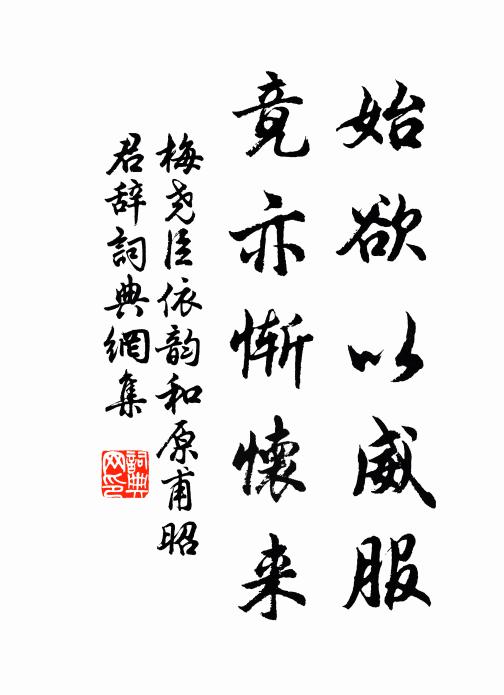 始欲以威服
竟亦惭懷来
梅尧臣依韵和原甫昭
君辞詞典網集
詞典网印